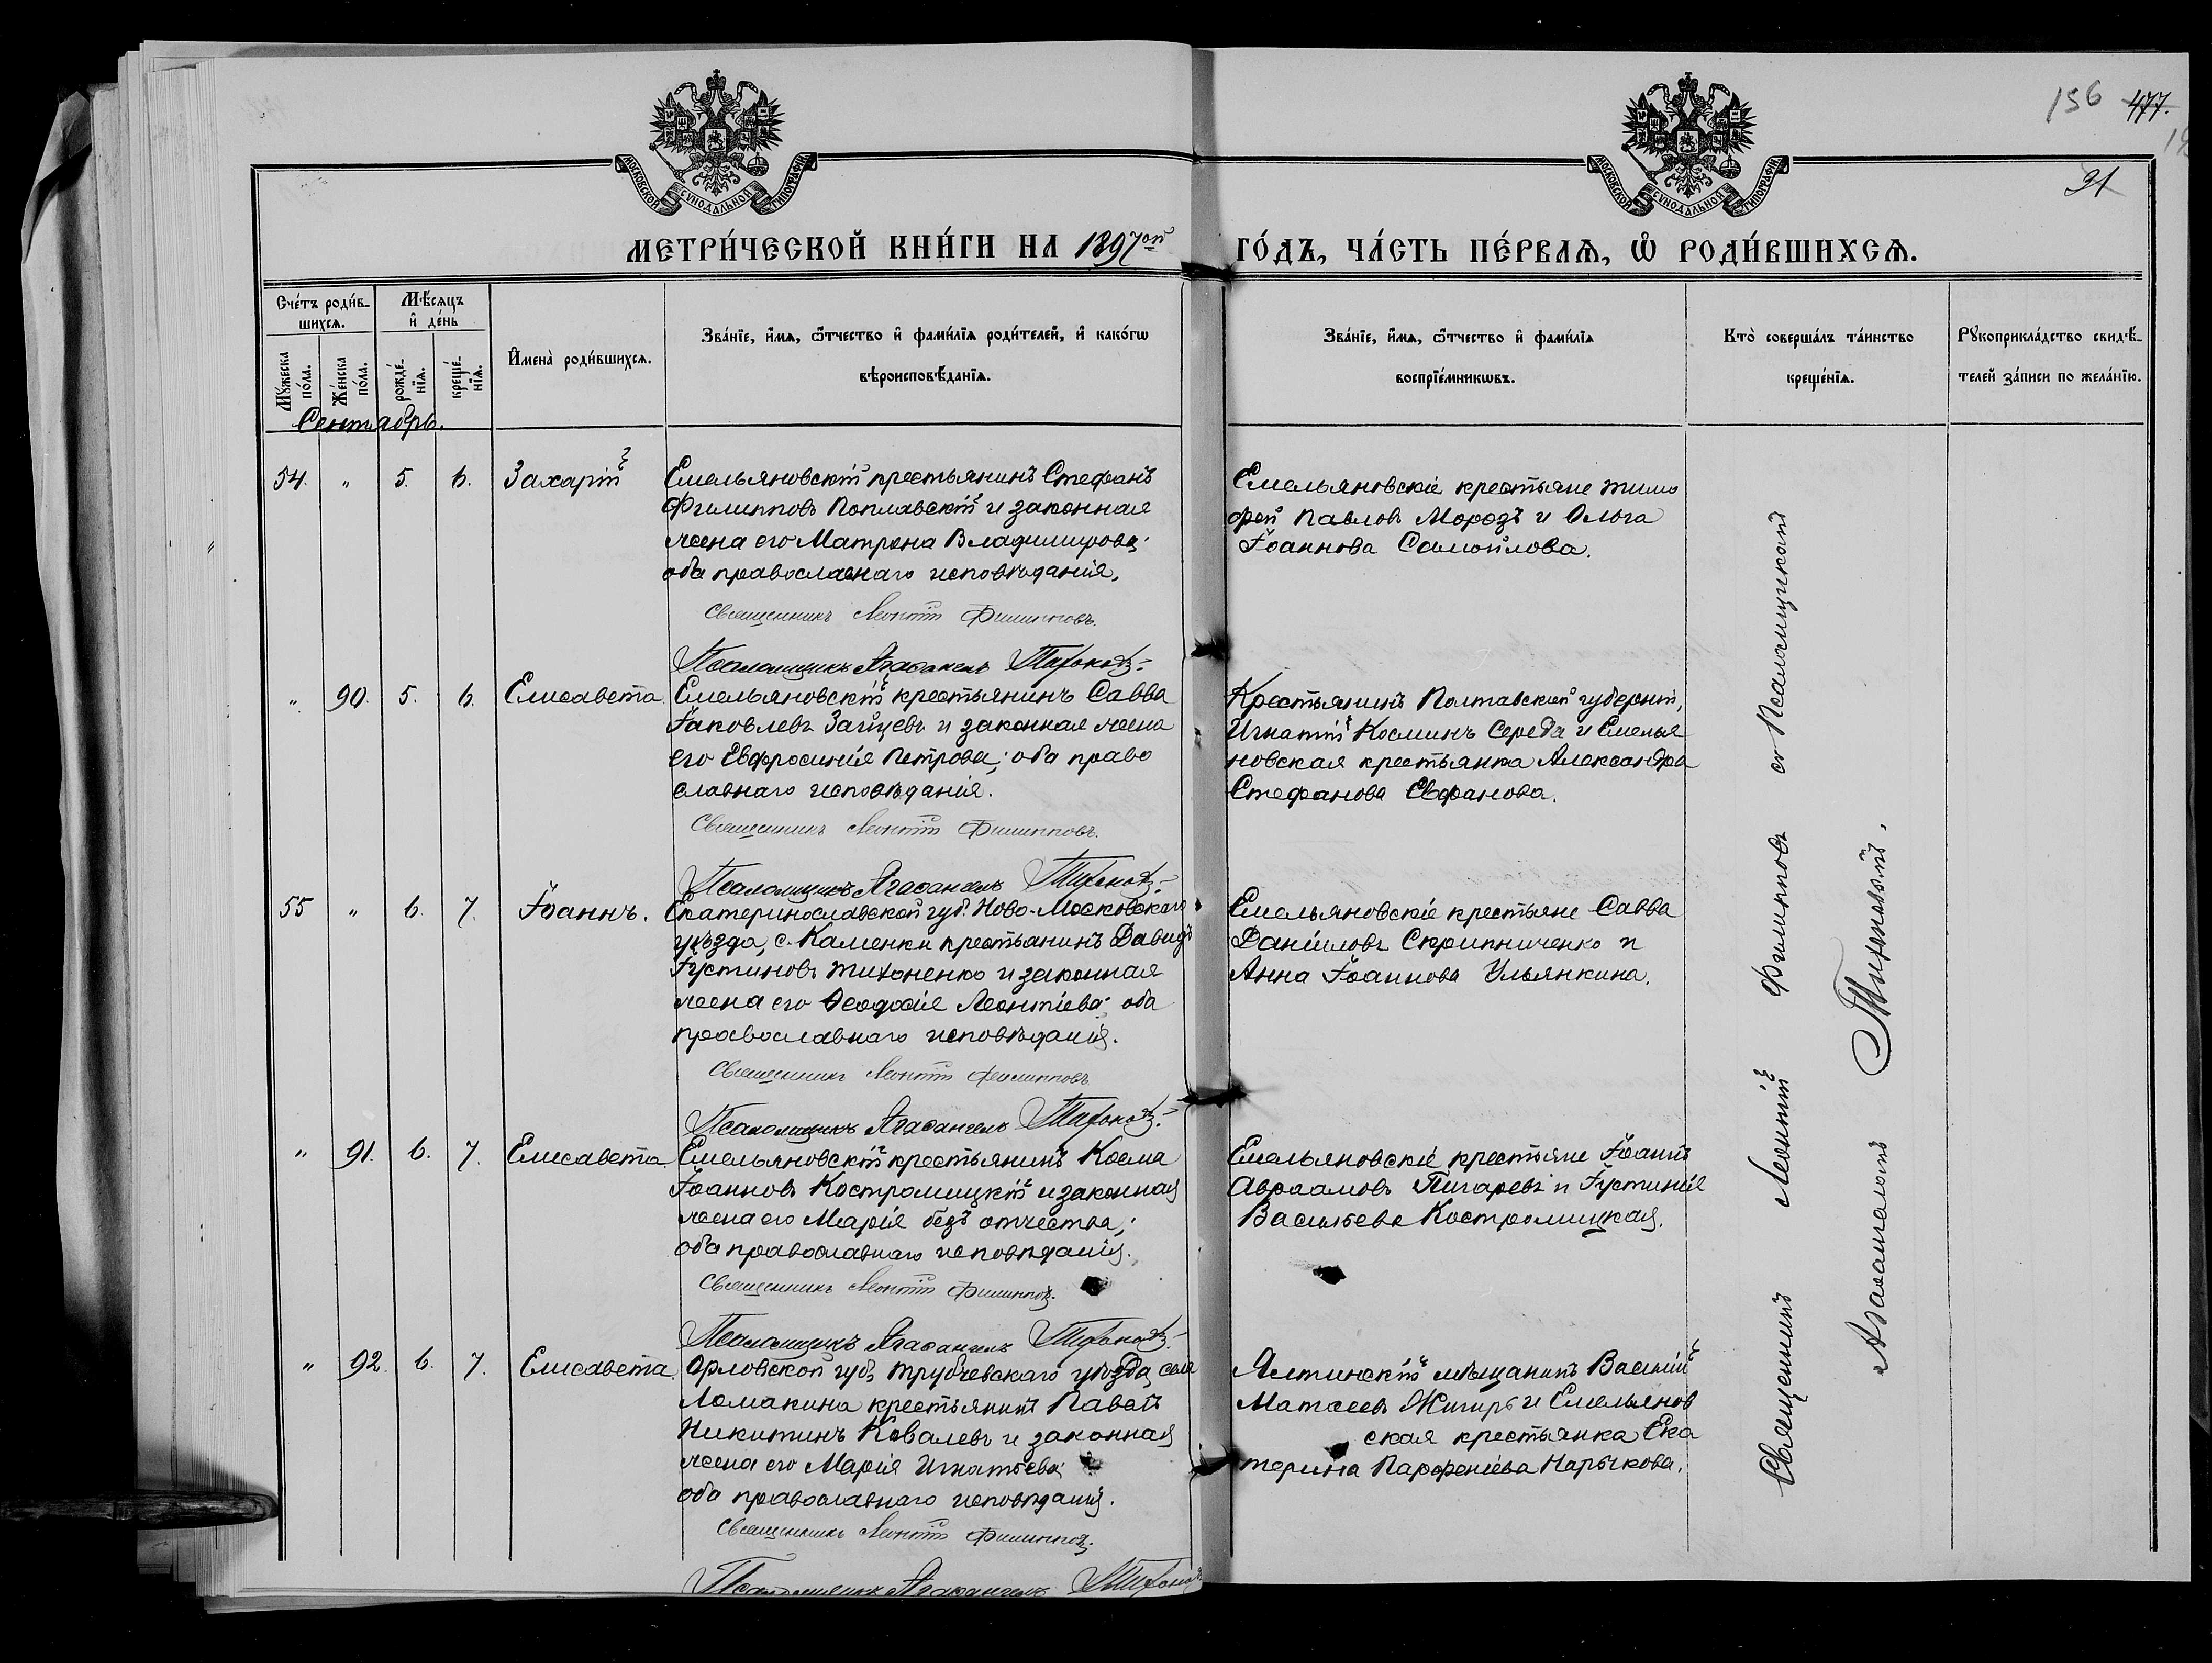 156 477.
31
МОСКОВСКОЙ СѴНОДАЛЬНОЙ ТИПОГРАФІИ
МОСКОВСКОЙ СѴНОДАЛЬНОЙ ТИПОГРАФІИ
МЕТРИ́ЧЕСКОЙ КНИ́ГИ НА 1897ой ГО́ДЪ, ЧА́СТЬ ПЕ́РВАѦ, Ѡ҆ РОДИ́ВШИХСѦ.
Сче́тъ роди́в-
шихсѧ.
Мꙋ́жеска по́ла.
Же́нска по́ла.
Мѣ́сѧцъ
и҆ де́нь
рожде́-
нїѧ.
креще́-
нїѧ.
И҆мена̀ роди́вшихсѧ.
Зва́нїе, и҆́мѧ, ѻ҆́тчество и҆ фами́лїѧ роди́телей, и҆ како́гѡ
вѣроисповѣ́данїѧ.
Зва́нїе, и҆́мѧ, ѻ҆́тчество и҆ фами́лїѧ
воспрїе́мникѡвъ.
Кто̀ соверша́лъ та́инство
креще́нїѧ.
Рꙋкоприкла́дство свидѣ́-
телей за́писи по жела́нїю.
Сентябрь.
54. " 5. 6. Захарій
Емельяновскій крестьянинъ Стефанъ
Филипповъ Поплавскій и законная
жена его Матрона Владимирова;
оба православнаго исповѣданія.
Священникъ Леонтій Филипповъ.
Псаломщикъ Агаѳангелъ Тихоновъ.
Емельяновскіе крестьяне Тимо
фей Павловъ Морозъ и Ольга
Іоаннова Самойлова.
" 90. 5. 6. Елисавета.
Емельяновскій крестьянинъ Савва
Іаковлевъ Зайцевъ и законная жена
его Евфросинія Петрова; оба право
славнаго исповѣданія.
Священникъ Леонтій Филипповъ.
Псаломщикъ Агаѳангелъ Тихоновъ.
Крестьянинъ Полтавской губерніи,
Игнатій Косминъ Середа и Емелья
новская крестьянка Александра
Стефанова Евфанова.
55 " 6. 7. Іоаннъ.
Екатеринославской губ. Ново-Московскаго
уѣзда, с. Каменки крестьянинъ Давидъ
Іустиновъ Тихоненко и законная
жена его Ѳеодосія Леонтіева; оба
православнаго исповѣданія.
Священникъ Леонтій Филипповъ.
Псаломщикъ Агаѳангелъ Тихоновъ.
Емельяновскіе крестьяне Савва
Даніиловъ Скрипниченко и
Анна Іоаннова Ульянкина.
" 91. 6. 7. Елисавета.
Емельяновскій крестьянинъ Косма
Іоанновъ Костромицкій и законная
жена его Марія безъ отчества;
оба православнаго исповѣданія.
Священникъ Леонтій Филипповъ.
Псаломщикъ Агаѳангелъ Тихоновъ.
Емельяновскіе крестьяне Іоаннъ
Авраамовъ Пигаревъ и Іустинія
Васильева Костромицкая.
" 92. 6. 7. Елисавета.
Орловской губ. Трубчевскаго уѣзда, села
Ломакина крестьянинъ Павелъ
Никитинъ Ковалевъ и законная
жена его Марія Игнатьева;
оба православнаго исповѣданія.
Священникъ Леонтій Филипповъ.
Псаломщикъ Агаѳангелъ Тихоновъ
Ялтинскій мѣщанинъ Василій
Матѳеевъ Жигирь и Емельянов
ская крестьянка Ека
терина Парфеніева Нарыкова.
Священникъ Леонтій Филипповъ съ Псаломщикомъ
Агаѳангеломъ Тихоновымъ.